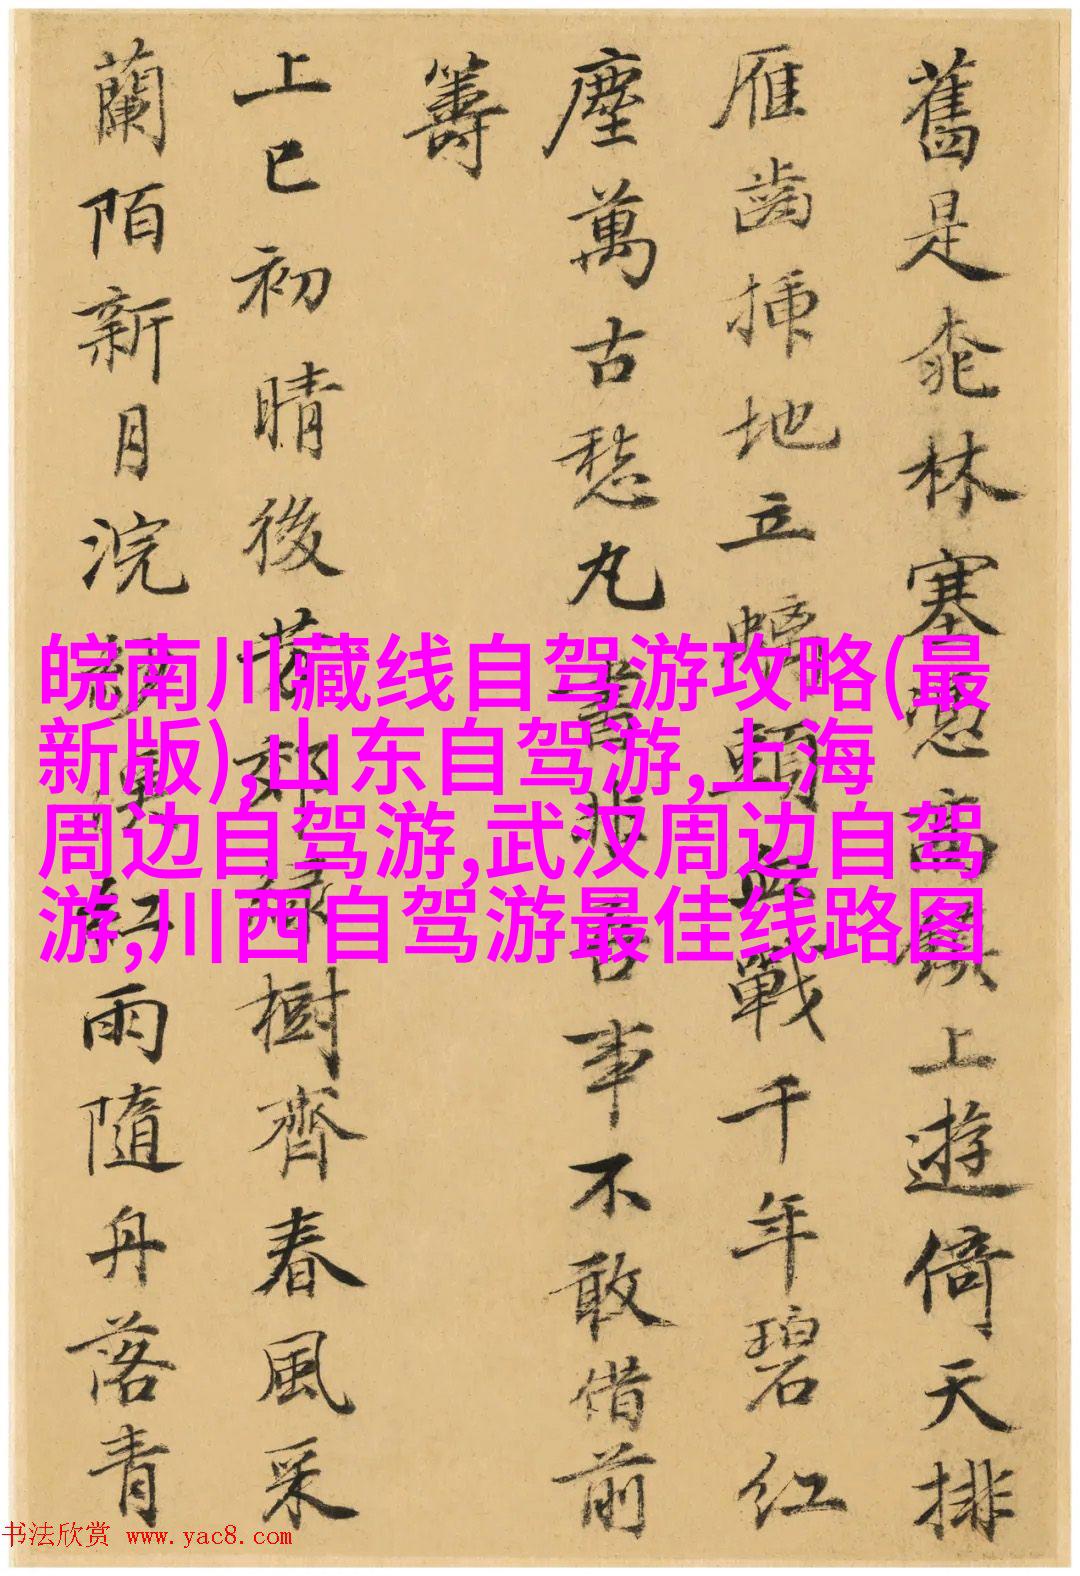 舊是林塞高鎮上遊倚天排
雁齒插地立頭血戰千年碧紅
塵萬古愁丸書非吾事不敢借前
籌
上巳初晴後芳郊緑樹齊春風采
蘭陌新月浣紗溪紅雨隨舟落青
皖南川藏线自驾游攻略(最
新版),山东自驾游,上海
周边自驾游,武汉周边自驾
游,川西自驾游最佳线路图
书法欣赏 www.yac8.com